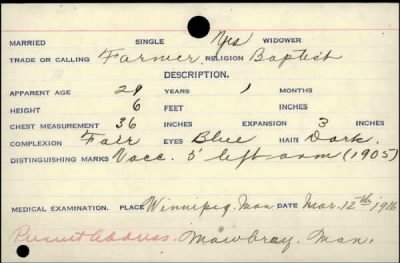 MARRIED SINGLE Yes WIDOWER
TRADE OR CALLING Farmer RELIGION Baptist
DESCRIPTION.
APPARENT AGE 29 YEARS 1 MONTHS
HEIGHT 6 FEET INCHES
CHEST MEASUREMENT 36 INCHES EXPANSION 3 INCHES
COMPLEXION Fair EYES Blue HAIR Dark.
DISTINGUISHING MARKS Vacc. 5 left arm (1905)
MEDICAL EXAMINATION. PLACE Winnipeg. Man DATE Mar. 12th 1916
Present Address. Mowbray. Man.